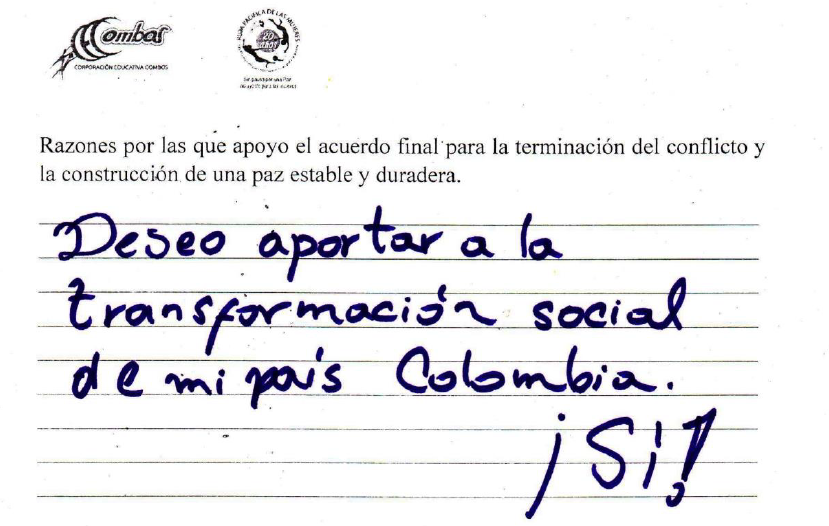 Combos
CORPORACIÓN EDUCATIVA COMBOS
RUTA PACÍFICA DE LAS MUJERES
20
años
Razones por las que apoyo el acuerdo final para la terminación del conflicto y
la construcción de una paz estable y duradera.
Deseo aportar a la
transformación social
de mi país Colombia.
¡Si!